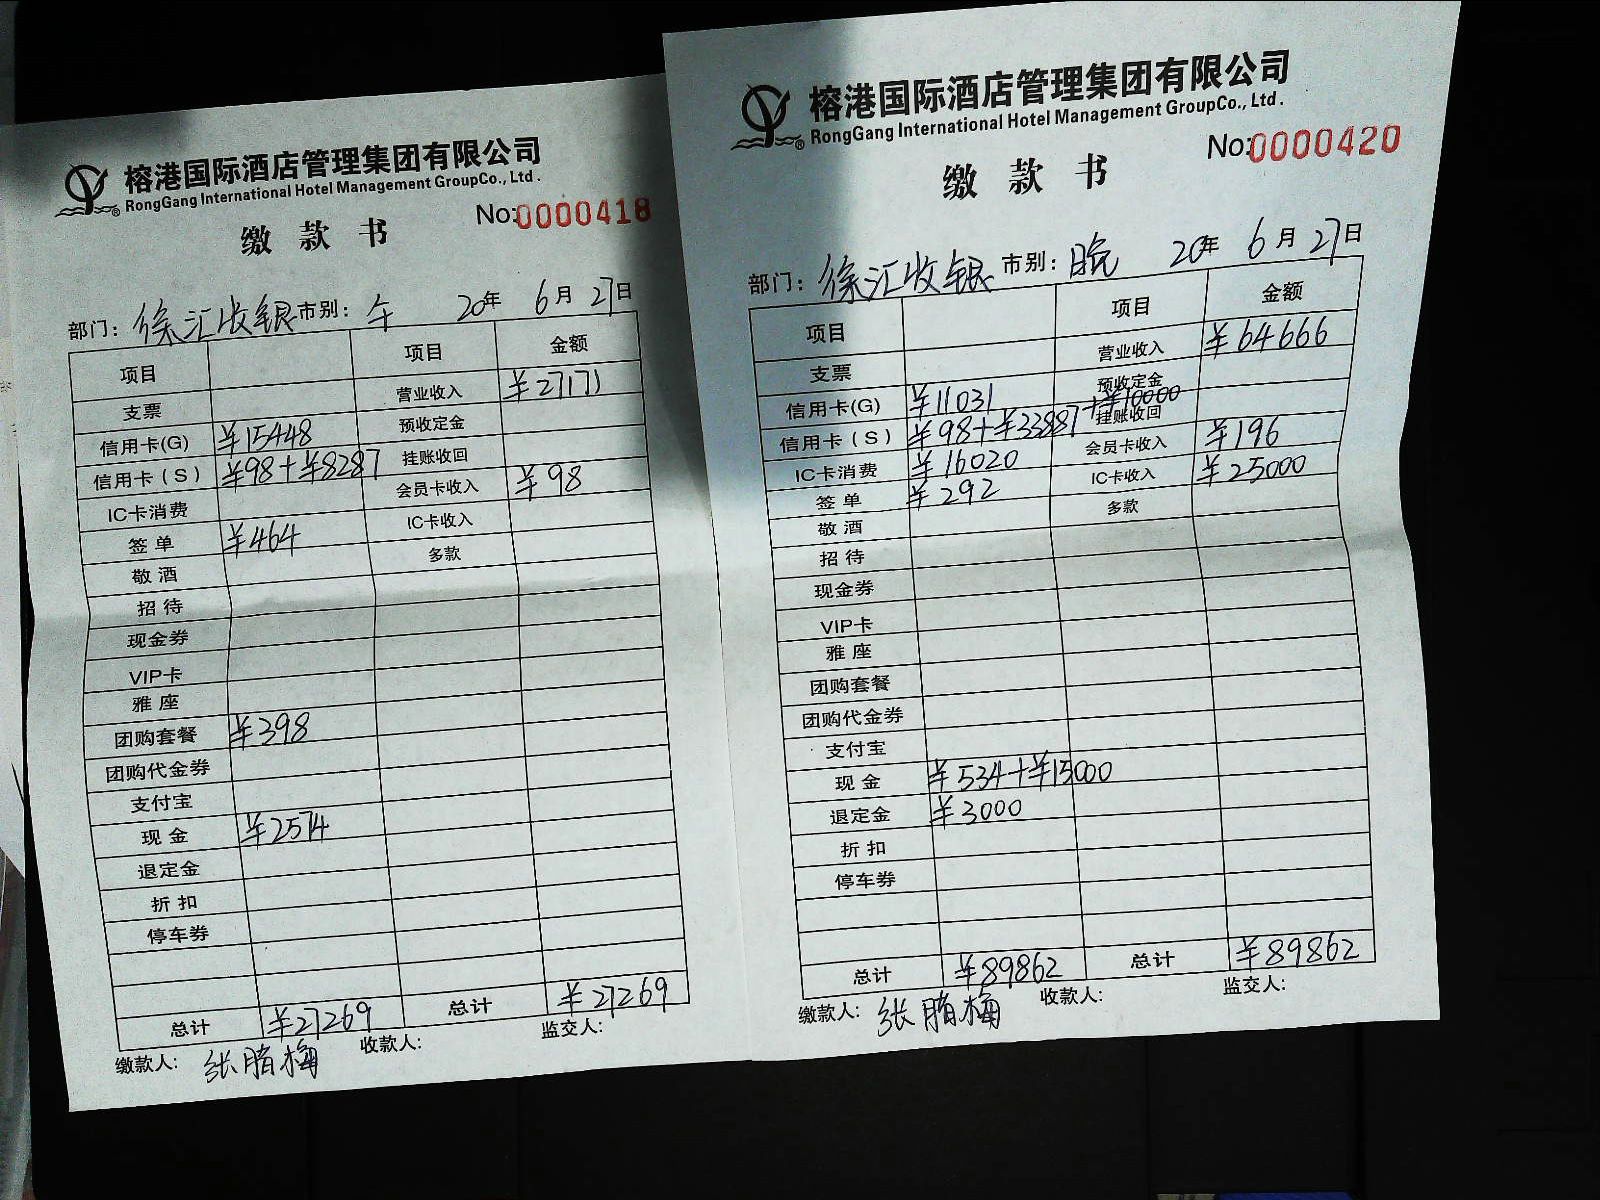 榕港国际酒店管理集团有限公司
RongGang International Hotel Management GroupCo., Ltd.
No:0000418
缴款书
部门: 徐汇收银 市别: 午 20年 6月 27日
项目 项目 金额
支票 营业收入 ¥27171
信用卡(G) ¥15448 预收定金
信用卡(S) ¥98+¥8287 挂账收回
IC卡消费 会员卡收入 ¥98
签单 ¥464 IC卡收入
敬酒 多款
招待
现金券
VIP卡
雅座
团购套餐 ¥398
团购代金券
支付宝
现金 ¥2574
退定金
折扣
停车券
总计 ¥27269 总计 ¥27269
缴款人: 张腊梅 收款人: 监交人:
榕港国际酒店管理集团有限公司
RongGang International Hotel Management GroupCo., Ltd.
No:0000420
缴款书
部门: 徐汇收银 市别: 晚 20年 6月 27日
项目 项目 金额
支票 营业收入 ¥64666
信用卡(G) ¥11031 预收定金
信用卡(S) ¥98+¥33887+¥10000 挂账收回
IC卡消费 ¥16020 会员卡收入 ¥196
签单 ¥292 IC卡收入 ¥25000
敬酒 多款
招待
现金券
VIP卡
雅座
团购套餐
团购代金券
支付宝
现金 ¥534+¥15000
退定金 ¥3000
折扣
停车券
总计 ¥89862 总计 ¥89862
缴款人: 张腊梅 收款人: 监交人: